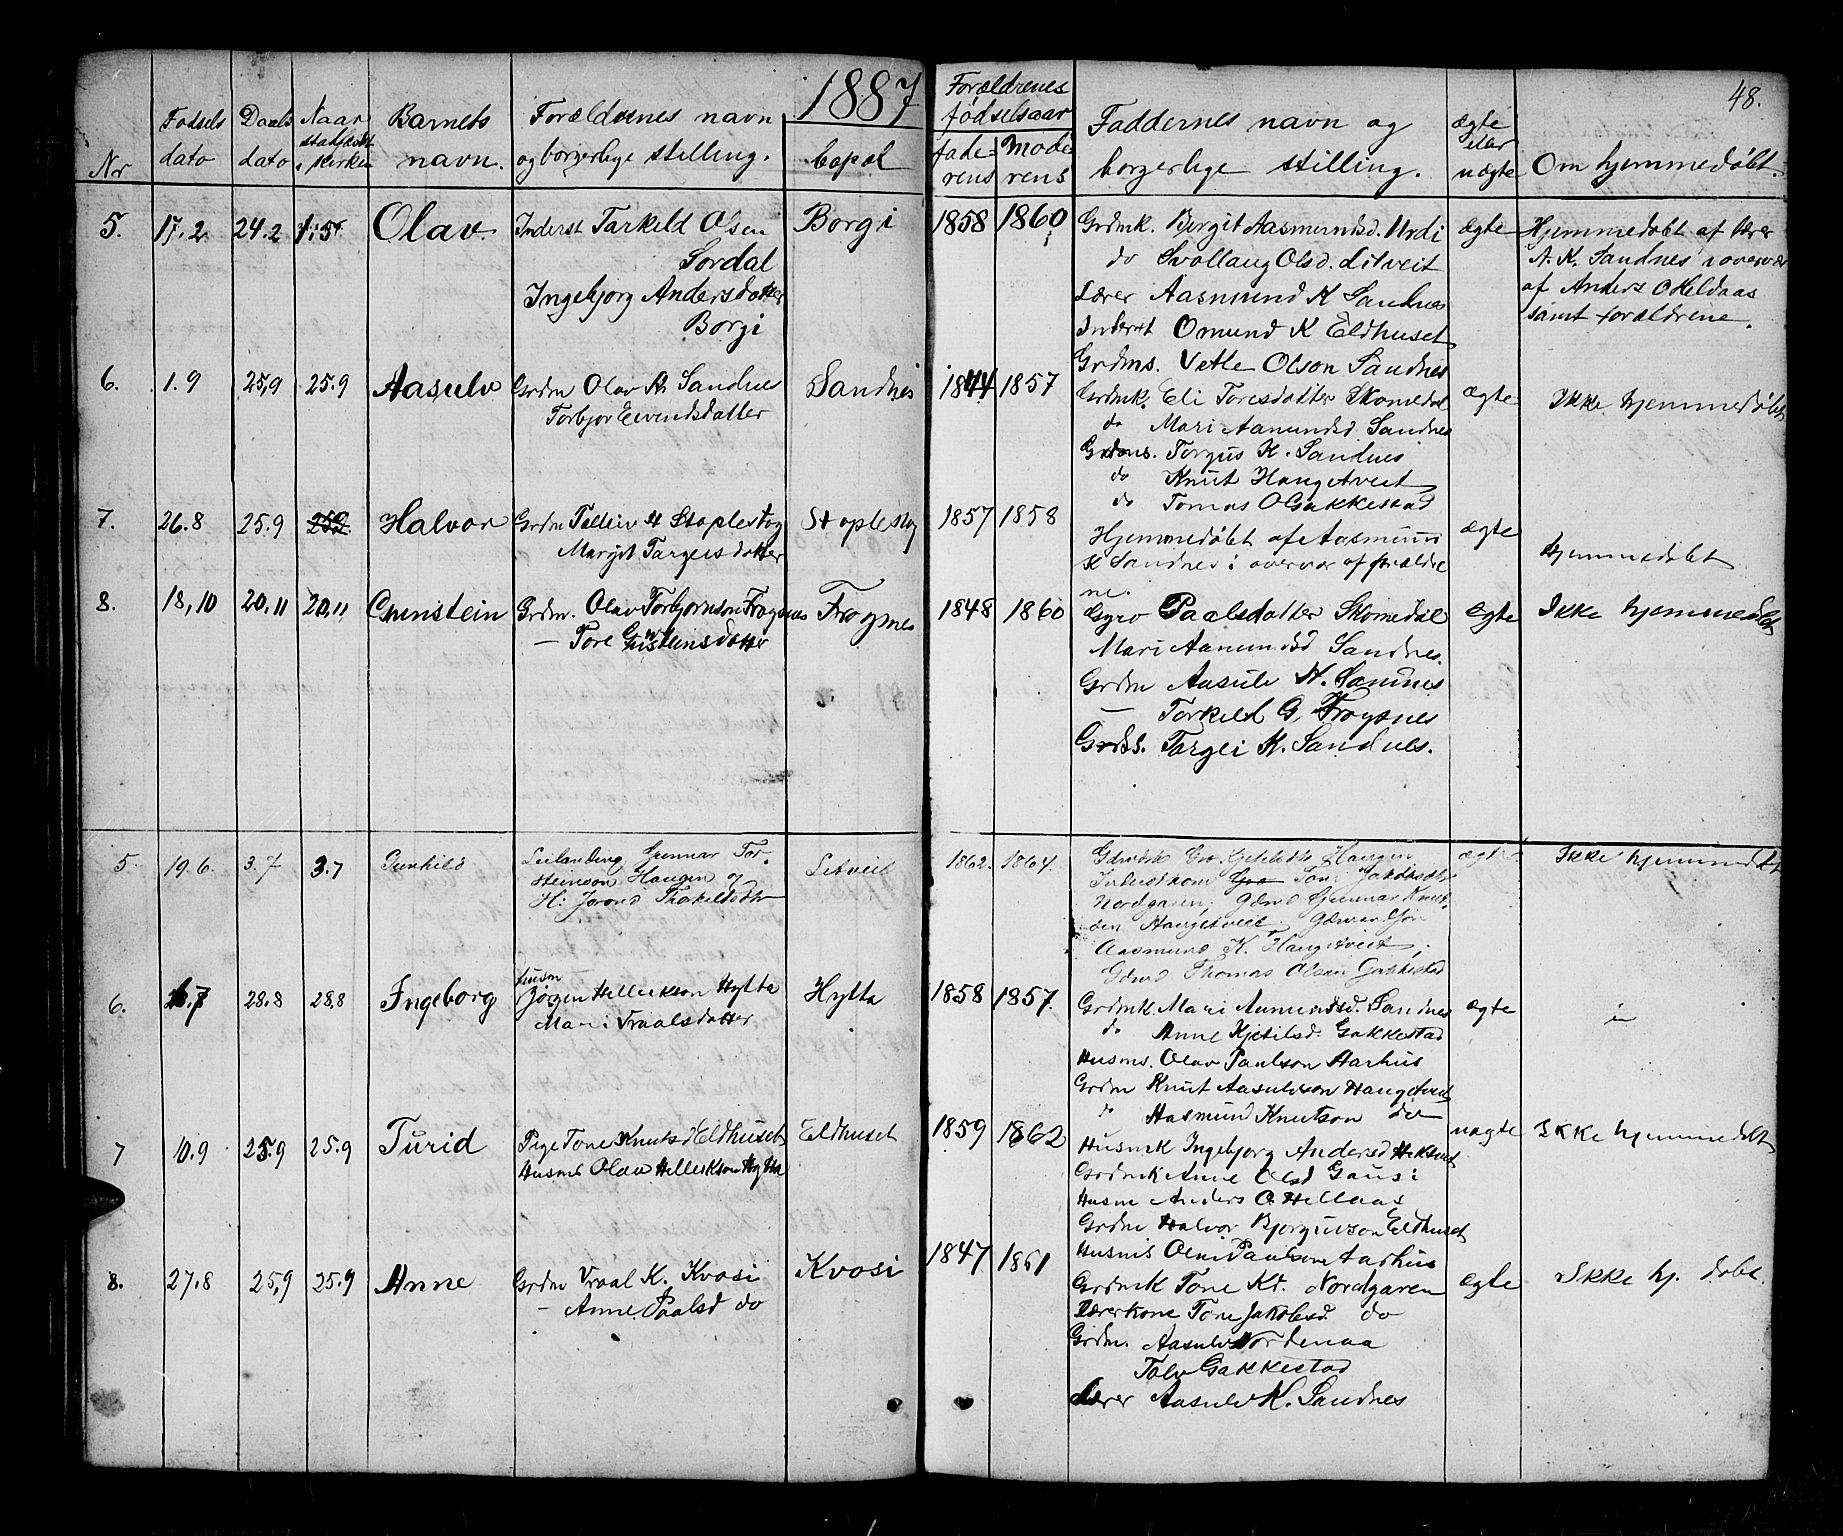 1887
48.
Nr
Fødsels dato
Daabs dato
Naar stadfæst i Kirken
Barnets navn.
Forældrenes navn og borgerlige stilling.
bopæl
Forældrenes fødselsaar
faderens
moderens
Faddernes navn og borgerlige stilling.
ægte eller uægte
Om hjemmedøbt.
5. 17.2 24.2 1:5 Olav
Inderst Tarkeld Olsen
Sordal
Ingebjorg Andersdatter
Borgi
Borgi
1858 1860
Grdmk. Bergit Aasmundsd. Urdi
do Svollaug Olsd. Litveit
Lærer Aasmund K Sandnes
Inderst Omund K Eldhuset
Grdms. Vetle Olson Sandnes
ægte
Hjemmedøbt af lærer
A. K. Sandnes i overvær
af Anders O Heldaas
samt forældrene.
6. 1.9 25,9 25.9 Aasulv
Grdm Olav A. Sandnes
Torbjor Eivendsdatter
Sandnes
1844 1857
Grdmk. Eli Toresdatter Skomedal
do Mari Aanundsd. Sandnes
Grdms. Torgus K. Sandnes
do Knut Haugetveit
do Tomas O Gakkestad
ægte
Ikke hjemmedøbt
7. 26.8 25.9 25.9 Halvor
Grdm Talleiv H Staplestog
Margit Targeisdatter
Staplestog
1857 1858
Hjemmedøbt af Aasmun
K Sandnes i overvær af forældre
ne.
ægte
hjemmedøbt
8. 18,10 20,11 20,11 Gunstein
Grdm. Olav Torbjornson Frøysnes
— Tore Gunsteinsdatter
Frøysnes
1848 1860
Gyro Paalsdatter Skomedal
Mari Aanundsd Sandnes.
Grdm Aasulv K. Sandnes
— Torkeld G. Frøysnes
Grds. Targei K. Sandnes.
ægte
Ikke hjemmedøbt
5. 19.6. 3.7 3.7 Gunhild
Leilending Gunnar Tor-
steinson Haugen og
H: Jorond Thorkeldsdtr
Litveit
1862. 1864.
Gdmdsk Gro Kjetilsdtr Haugen
Inderstkone Gro Tone Jakobsdtr
Nordgaren; Gdmd Gunnar Knut-
sen Haugetveit. Gdmandssøn
Aasmund K. Haugetveit;
Gdmd Thomas Olsen Gakkestad
ægte
Ikke hjemmedøbt
6. 28.8 28,8 Ingeborg
husm
Jørgen Hellikson Hytta
Mari Vraalsdatter
Hytta
1858 1857
Grdmk. Mari Aanundsd. Sandnes
do Anne Kjetilsd. Gakkestad
Husms. Olav Paulson Aarhus
Grdm Knut Aasulvson Haugetveit
do Aasmund Knutson do
ægte
7 10.9 25.9 25.9 Turid
Pige Tone Knutsd Eldhuset
Husms Olav Hellikson Hytta
Eldhuset
1859 1862
Husmk Ingebjorg Andersd
Grdmk Anne Olsd Gausi
Husm Anders O. Hellaas
Grdm Halvor Bjorguvson Eldhuset
Husms Olav Paulson Aarhus
uægte
Ikke hjemmedøbt
8. 27.8 25,9 25.9 Anne
Grdm Vraal K. Kvasi
— Anne Paalsd do
Kvosi
1847 1861
Grdmk Tone Kd. Nordgaren
Lærerkone Tone Jakobsd. do
Grdm. Aasulv Nordenaa
Talv Gakkestad
Lærer Aasulv K. Sandnes
ægte
Ikke hj. døbt.